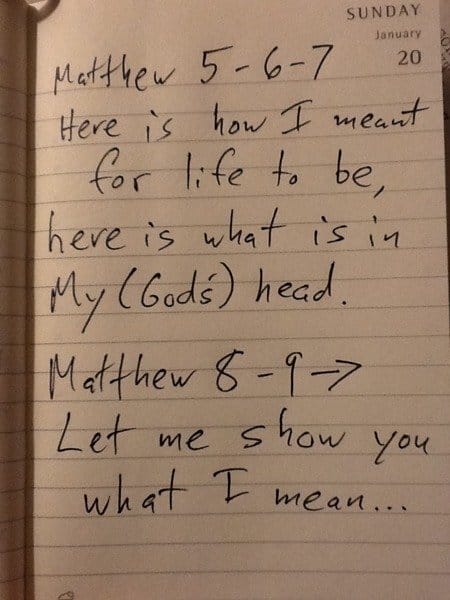 SUNDAY
January
20
Matthew 5-6-7
Here is how I meant
for life to be,
here is what is in
My (God's) head.
Matthew 8-9->
Let me show you
what I mean...